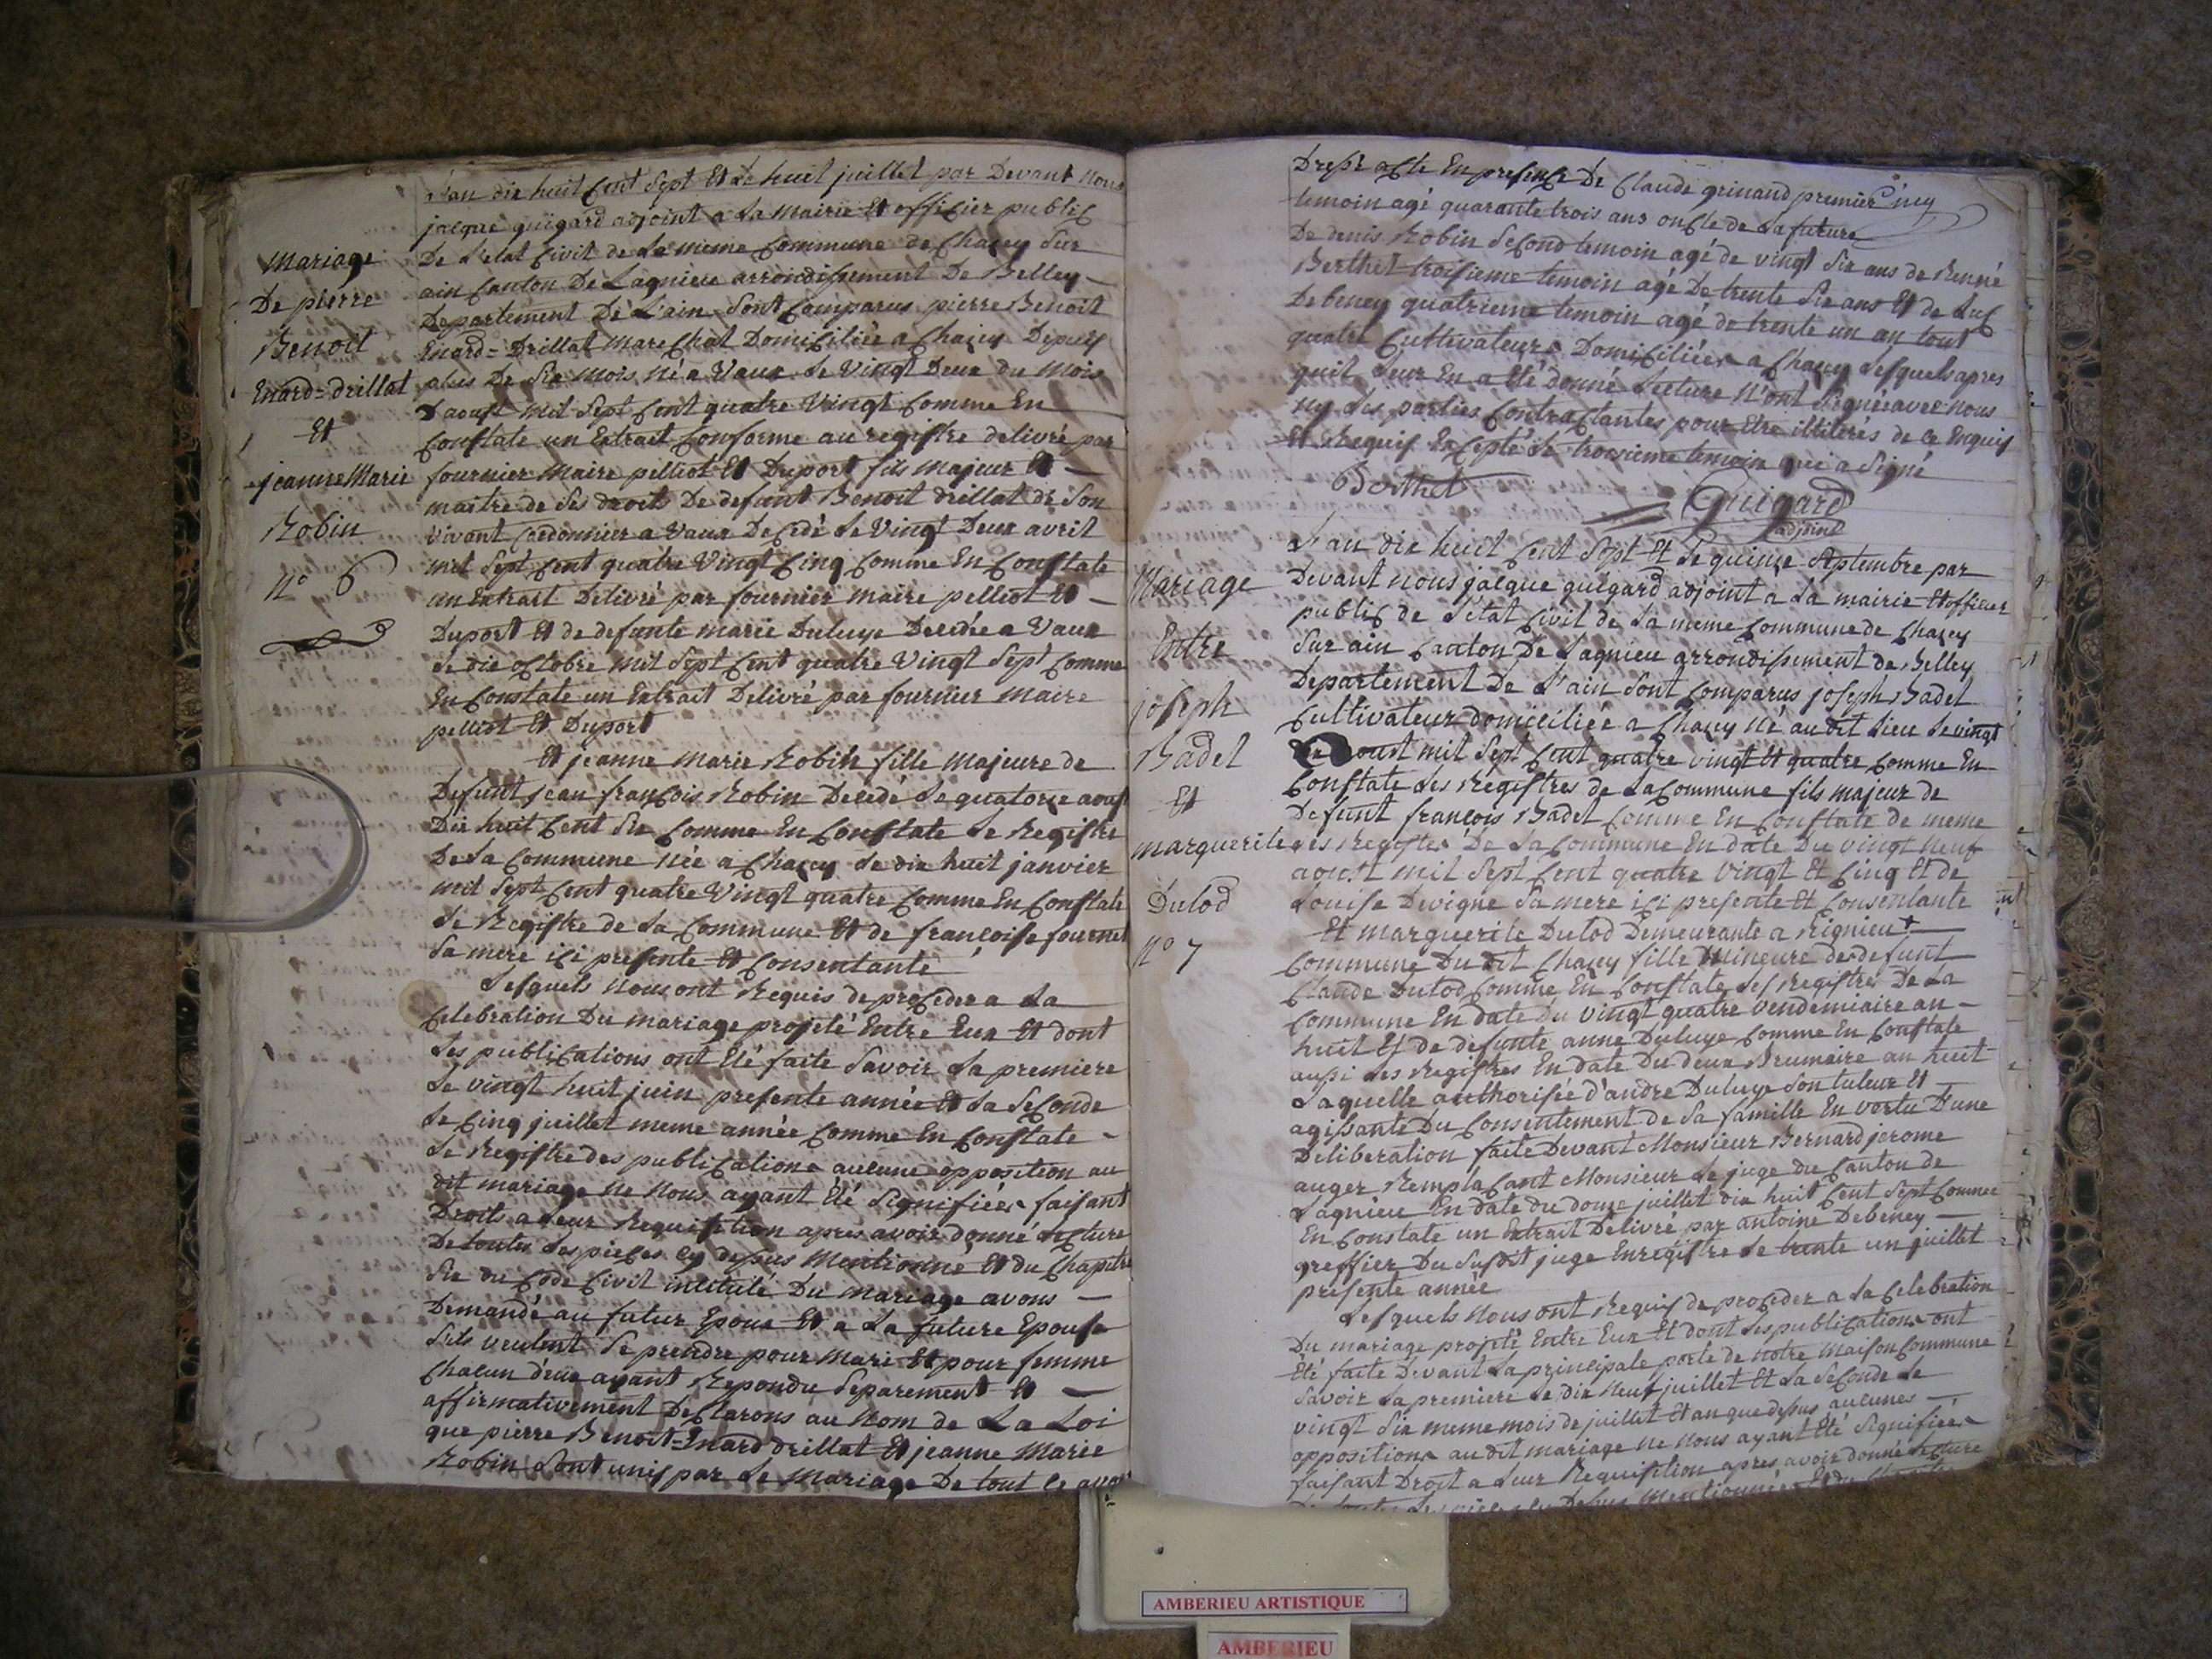 L'an dix huit Cent Sept Et Le huit juillet par Devant Nous
jacque guigard adjoint a La Mairie Et officier public
De L'etat Civil de La meme Commune de Chazey Sur
ain Canton De Lagnieu arrondissement De Belley
Departement De L'ain Sont Comparus pierre Benoit
Enard=Drillat Marechal Domiciliée a Chazey Depuis
plus De Six Mois Né a Vaux Le Vingt Deux du Mois
Daoust mil Sept Cent quatre Vingt Comme En
Constate un Extrait Conforme au registre delivré par
fournier Maire pelliot Et Duport fils Majeur Et
maitre de Ses droits De defunt Benoit Drillat de Son
Vivant Cordonnier a Vaux Decedé Le Vingt Deux avril
mil Sept Cent quatre Vingt Cinq Comme En Constate
un Extrait Delivré par fournier Maire pelliot Et
Duport Et de defunte Marie Duluye Decedée a Vaux
Le dix octobre mil Sept Cent quatre Vingt Sept Comme
En Constate un Extrait Delivré par fournier Maire
pelliot Et Duport
Et jeanne Marie Robin fille Majeure de
Defunt jean francois Robin Decedé Le quatorze aoust
Dix huit Cent Six Comme En Constate Le Registre
De La Commune Née a Chazey Le dix huit janvier
mil Sept Cent quatre Vingt quatre Comme En Constate
Le Registre de La Commune Et de francoise fournet
Sa mere ici presente Et Consentante
Lesquels Nous ont Requis de proceder a La
Celebration Du Mariage projeté Entre Eux Et dont
Les publications ont Eté faite Savoir La premiere
Le vingt huit juin presente année Et La Seconde
Le Cinq juillet meme année Comme En Constate
Le Registre des publications aucune opposition au
dit mariage Ne Nous ayant Eté Signifiées faisant
Droits a Leur Requisition apres avoir donné Lecture
De toutes Les pieces Cy dessus Mentionné Et du Chapitre
Six du Code Civil intitulé Du Mariage avons
Demandé au futur Epoux Et a La future Epouse
Sils veulent Se prendre pour Mari Et pour femme
Chacun deux ayant Repondu Separement Et
affirmativement Declarons au Nom de La Loi
que pierre Benoit=Enard drillat Et jeanne Marie
Robin Sont unis par Le Mariage De tout Ce avons
Mariage
De pierre
Benoit
Enard=drillat
Et
jeanne Marie
Robin
N° 6
Dressé acte En presence De Claude grinand premier
temoin agé quarante trois ans oncle de La future
De denis Robin Second temoin agé de vingt Six ans de Renné
Berthet troisieme temoin agé De trente Six ans Et de Luc
Debeney quatrieme temoin agé de trente un an tout
quatre Cultivateurs Domiciliées a Chazey Lesquels apres
quil Leur En a Eté donné Lecture N'ont Signés avec Nous
Ny Les parties Contractantes pour Etre illiterés de Ce Enquis
Et Requis Excepté Le troisieme temoin qui a Signé
Berthet
Guigard
adjoint
L'an dix huit Cent Sept Et Le quinze Septembre par
Devant nous jacque guigard adjoint a La mairie Et officier
public de L'etat Civil de La meme Commune de Chazey
Sur ain Canton De Lagnieu arrondissement de Belley
Departement De L'ain Sont Comparus joseph Badel
Cultivateur domiciliée a Chazey Né au dit Lieu Le vingt
aoust mil Sept Cent quatre vingt Et quatre Comme En
Constate Les Registres de La Commune fils majeur de
Defunt francois Badel Comme En Constate de meme
Les Registres De La Commune En date Du vingt Neuf
aoust mil Sept Cent quatre Vingt Et Cinq Et de
Louise Devigne Sa mere ici presente Et Consentante
Et marguerite Dutod Demeurante a Rignieu
Commune Du dit Chazey fille Mineure de defunt
Claude Dutod Comme En Constate Les Registres De La
Commune En date Du vingt quatre Vendemiaire an
huit Et de defunte anne Duluye Comme En Constate
aussi Les Registres En date Du deux Brumaire an huit
Laquelle authorisée d'andre Duluye Son tuteur Et
agissante Du Consentement de Sa famille En vertu D'une
Deliberation faite Devant Monsieur Bernard jerome
auger Remplacant Monsieur Le juge du Canton de
Lagnieu En date du douze juillet dix huit Cent Sept Comme
En Constate un Extrait Delivré par antoine Debeney
greffier Du Susdit juge Enregistre Le trente un juillet
presente année
Lesquels Nous ont Requis de proceder a La Celebration
Du mariage projeté Entre Eux Et dont Les publications ont
Eté faite Devant La principale porte de Notre Maison Commune
Savoir La premiere Le Dix Neuf juillet Et La Seconde Le
vingt Six meme mois de juillet Et an que dessus aucunes
oppositions au dit mariage Ne Nous ayant Eté Signifiées
faisant Droit a Leur Requisition apres avoir donné Lecture
Mariage
Entre
joseph
Badel
Et
marguerite
Dutod
N° 7
AMBERIEU ARTISTIQUE
AMBERIEU